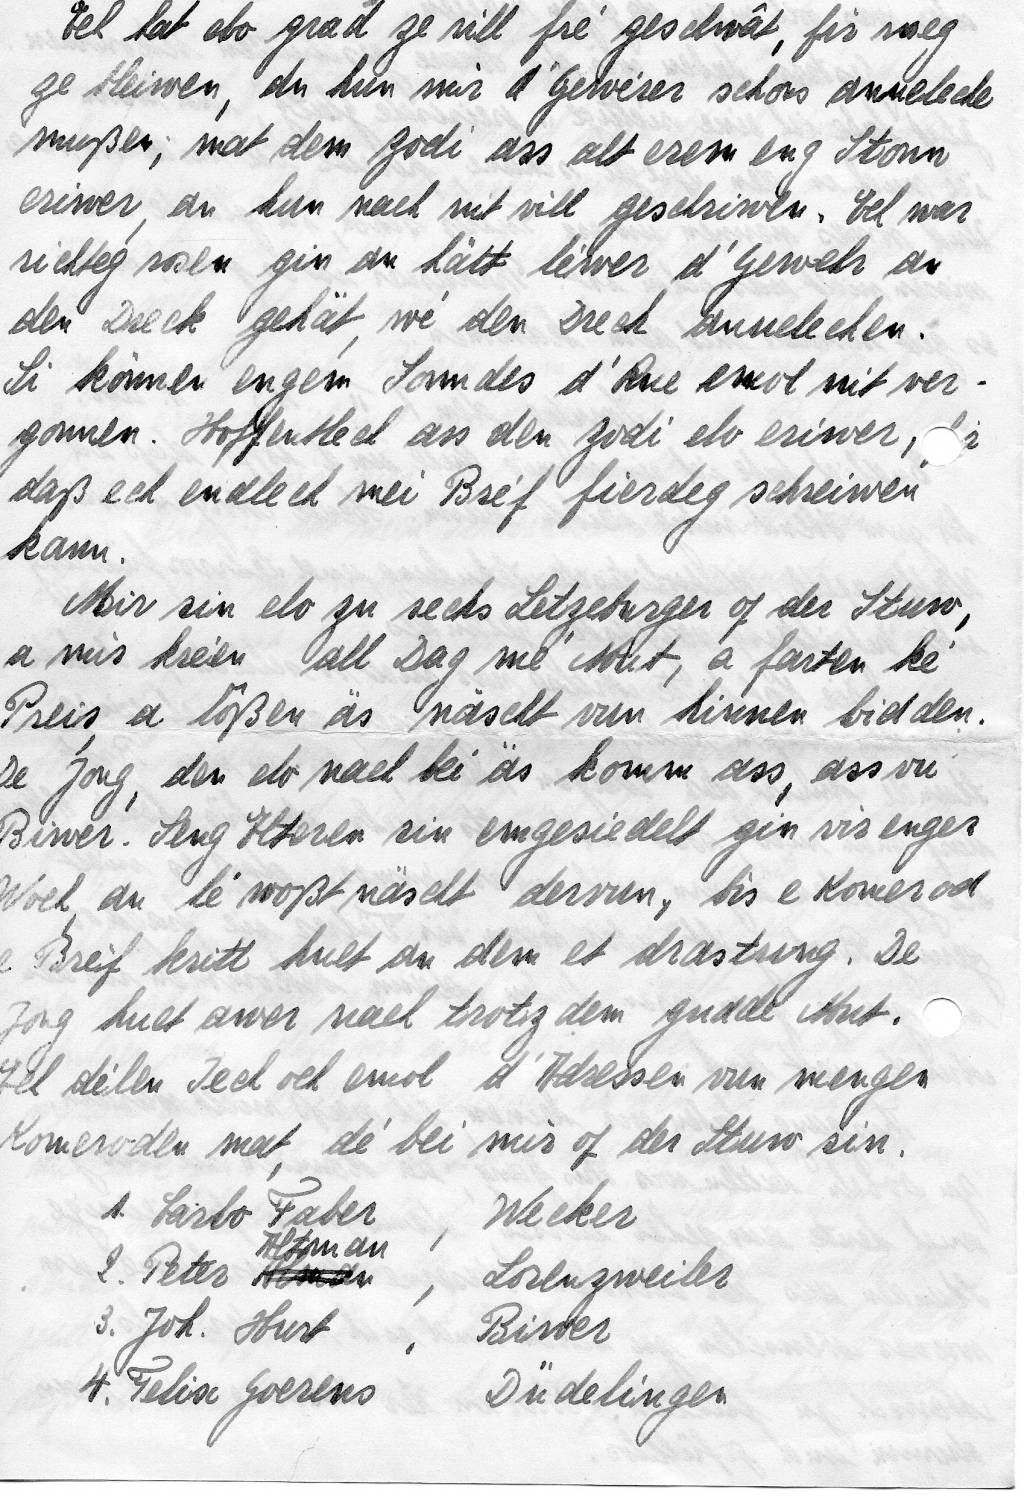 Ech hat elo grad ze vill fré geschwät, fir weg
ze bleiwen, du hun mir d'Gewerer schons annelech
mußen, mat dem Zodi ass alt erem eng Stonn
eriwer, an hun nach nit vill geschriwen. Ech war
richteg rosen gin an hätt léwer d'Gewehr an
den Dreck gehät, wé den Drech annelechen.
Si können engem Sonndes d'Rue emol nit ver-
gonnen. Hoffentlech ass den Zodi elo eriwer,
daß ech endlech mei Bréf fierdeg schreiwen
kann.
Mir sin elo zu sechs Letzeburger of der Stuw,
a mir kréien all Dag mé Mut, a farten ké
Preis, a lößen äs näscht vun hinnen bidden.
De Jong, den elo nach bei äs komm ass, ass vu
Biwer. Seng Elteren sin emgesiedelt gin vir enger
Woch, an hé woßt näscht dervun, bis e Komerod
e Breif kritt huet an dem et drastung. De
Jong huet awer nach trotzdem gudde Mut.
Ech délen Iech och emol d'Adressen vun mengen
Komeroden mat, dé bei mir of der Stuw sin.
1. Carlo Faber, Wecker
Altman
2. Peter , Lorenzweiler
3. Joh. Hurt, Biwer
4. Felix Goerens Düdelingen